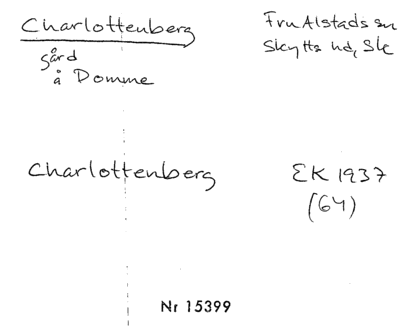 Charlottenberg
gård
å Domme
Fru Alstads sn
Skytts hd, Sk
Charlottenberg
EK 1937
(64)
Nr 15399